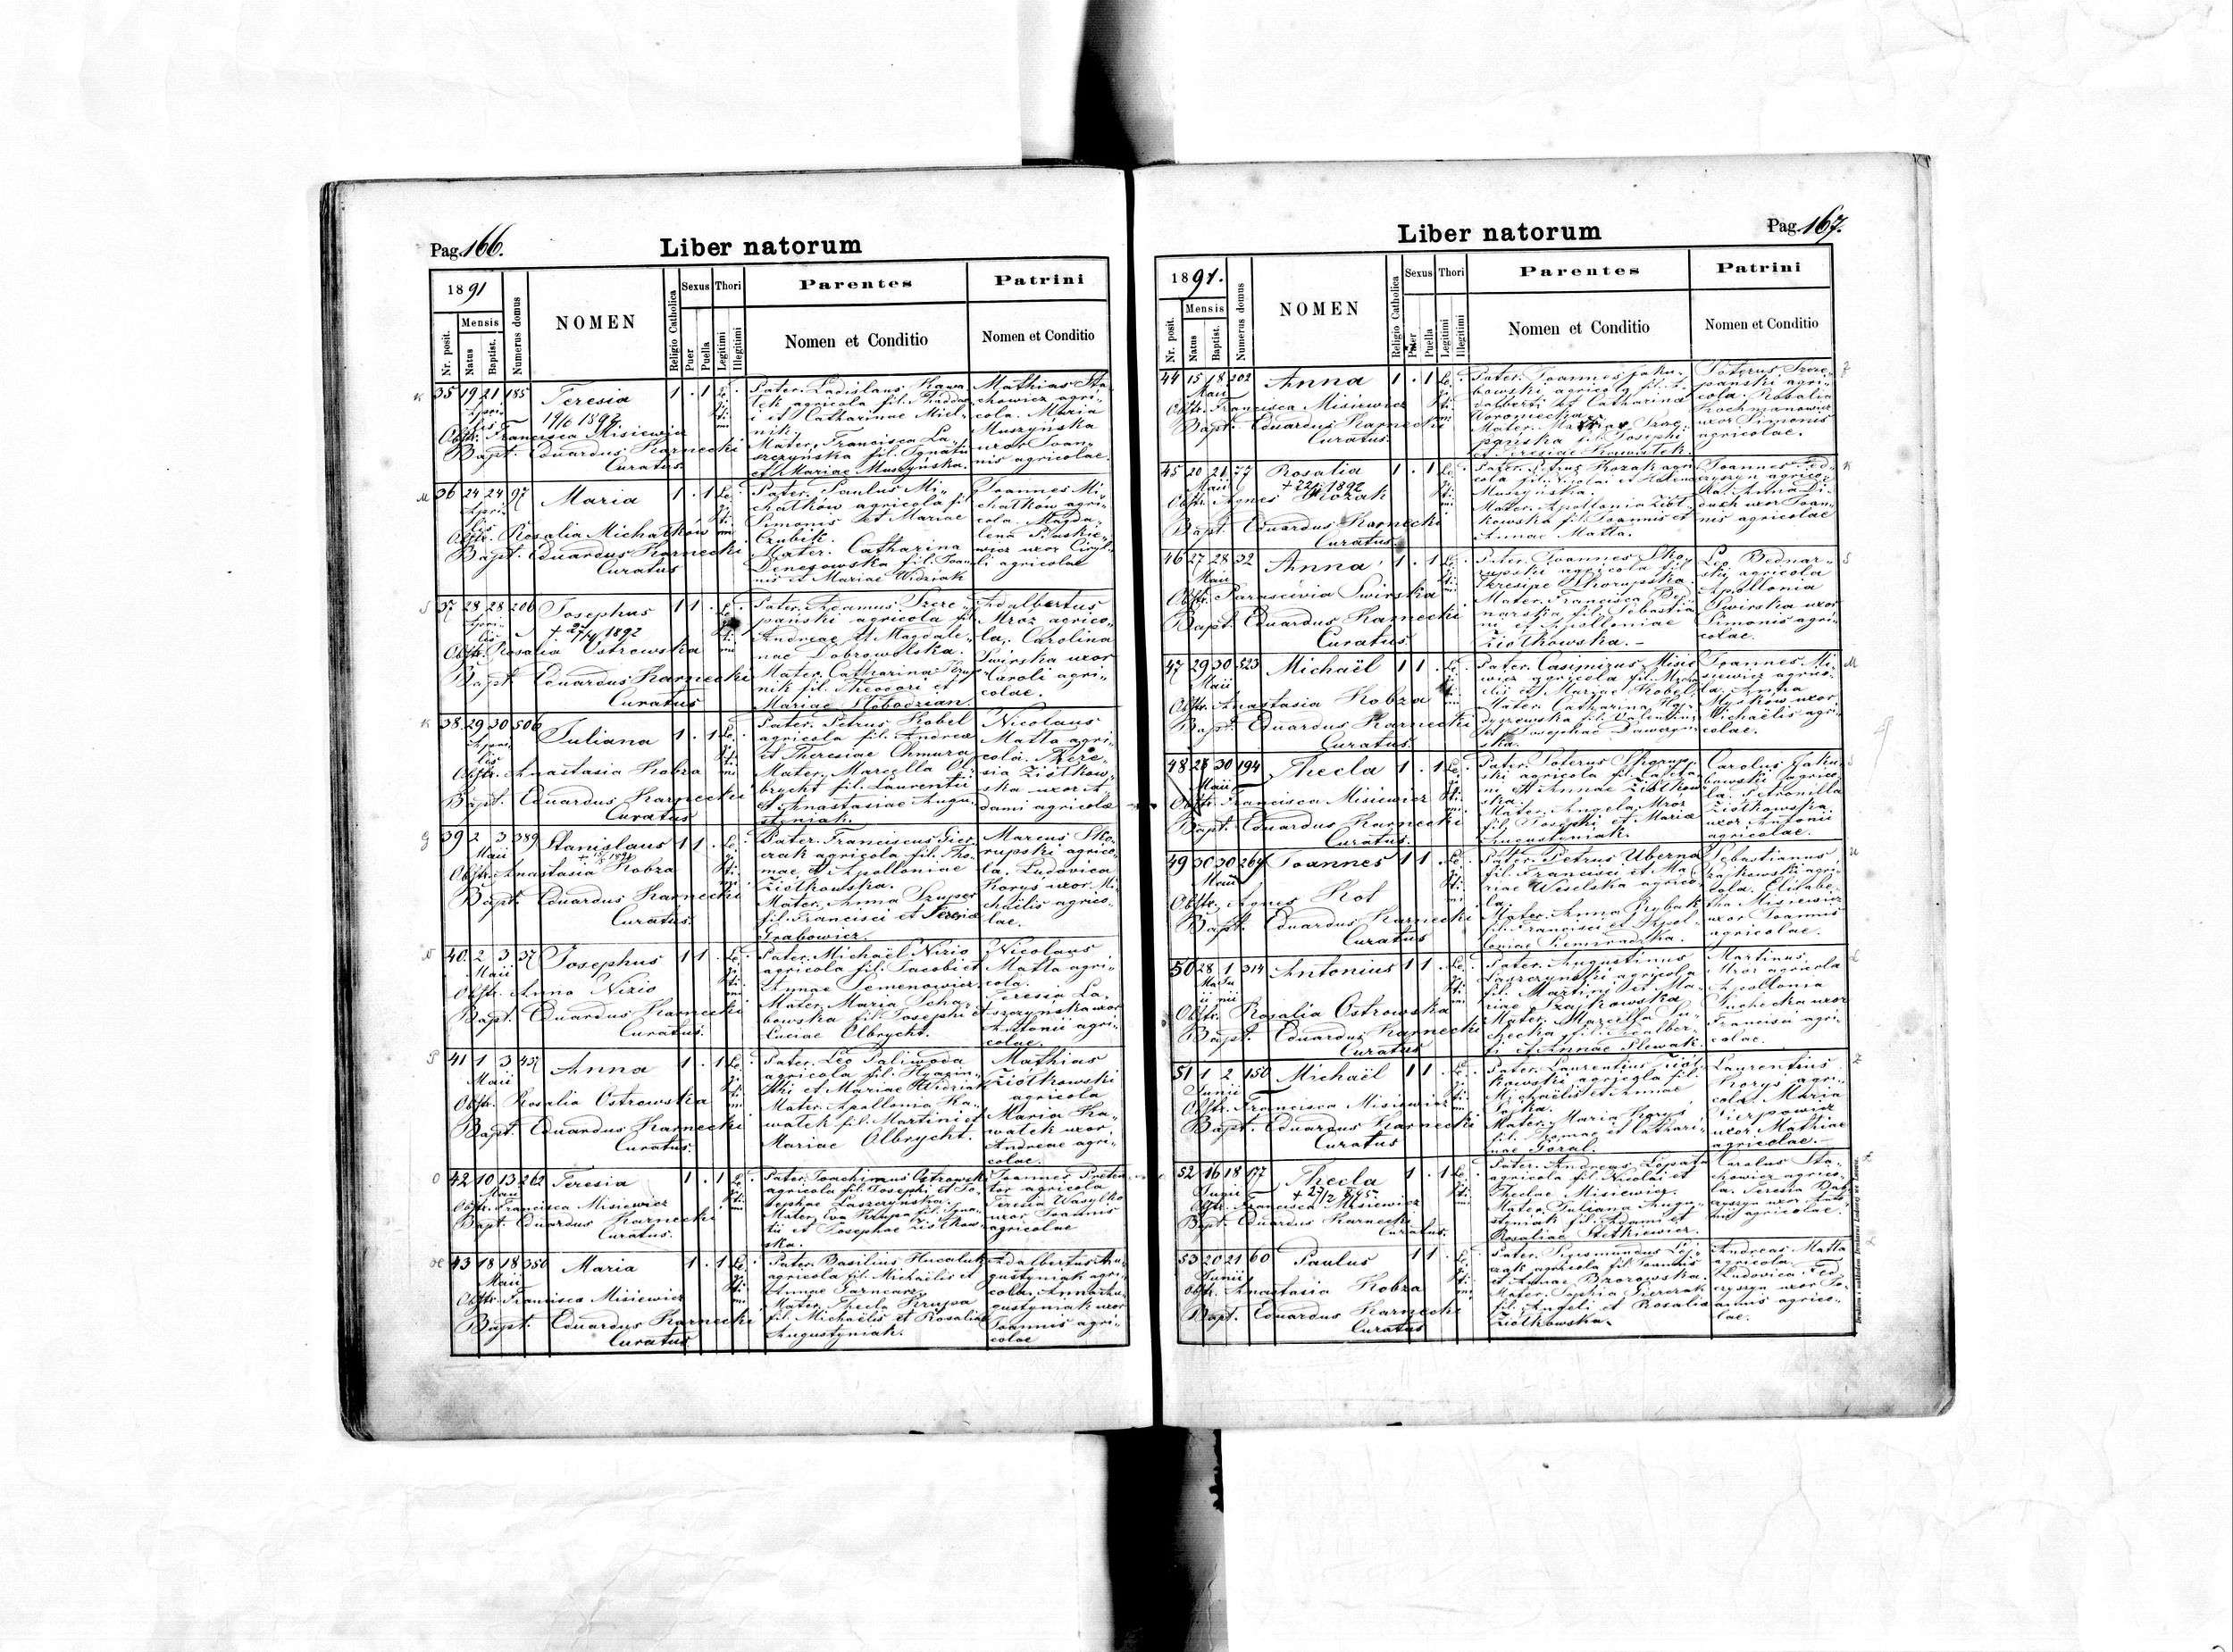 Pag. 166.
Liber natorum
1891
Nr. posit.
Mensis
Natus
Baptist.
Numerus domus
NOMEN
Religio Catholica
Sexus
Puer
Puella
Thori
Legitimi
Illegitimi
Parentes
Nomen et Conditio
Patrini
Nomen et Conditio
K 35 19 21 185 Teresia 1 . 1
19/6 1892
Obstr. Francisca Misiewicz
Bapt. Eduardus Karnecki
Curatus
Pater. Ladislaus Kawa-
tek agricola fil. Thaddae-
i et Catharinae Miel-
nik.
Mater. Francisca La-
szczyńska fil. Ignatii
et Mariae Muszyńska.
Mathias Sta-
chowicz agri-
cola. Maria
Muszyńska
uxor Joan-
nis agricolae.
M 36 24 24 97 Maria 1 . 1
Aprilis
Obstr. Rosalia Michatków
Bapt. Eduardus Karnecki
Curatus
Pater. Paulus Mi-
chatków agricola fil.
Simonis et Mariae
Czubik.
Mater. Catharina
Denegowska fil. Joan-
nis et Mariae Widziak
Joannes Mi-
chatkow agri-
cola. Magda-
lena
uxor
agricolae
S 37 28 28 206 Josephus 1 1 .
+ 27/4 1892
Obstr. Rosalia Ostrowska
Bapt. Eduardus Karnecki
Curatus
Pater. Adamus Szcze-
pański agricola fil.
Andreae et Magdale-
nae Dobrowolska.
Mater. Catharina Krup-
nik fil. Theodori et
Mariae Słobodzian.
Adalbertus
Mroz agrico-
la. Carolina
Swirska uxor
Caroli agri-
colae.
K 38. 29 30 506 Juliana 1 . 1
Obstr. Anastasia Kobza
Bapt. Eduardus Karnecki
Curatus
Pater. Petrus Kobel
agricola fil. Andreae
et Theresiae Chmura
Mater. Marcella Ol-
brycht fil. Laurentii
et Anastasiae Augu-
styniak.
Nicolaus
Matla agri-
cola. There-
sia Ziółkow-
ska uxor A-
dami agricolae
G 39 2 3 389 Stanislaus 1 1 .
Maii
Obstr. Anastasia Kobza
Bapt. Eduardus Karnecki
Curatus.
Pater. Franciscus Gier-
czak agricola fil. Tho-
mae et Apolloniae
Ziółkowska.
Mater. Anna Szuper
fil. Francisci et Teresiae
Grabowicz.
Marcus Sko-
rupski agrico-
la. Ludovica
Korys uxor Mi-
chaëlis agrico-
lae.
N 40. 2 3 37 Josephus 1 1 .
Maii
Obstr. Anna Nizio
Bapt. Eduardus Karnecki
Curatus.
Pater. Michaël Nizio
agricola fil. Jacobi et
Annae Semenowicz.
Mater. Maria Scha-
bowska fil. Josephi et
Luciae Olbrycht.
Nicolaus
Matla agri-
cola.
Teresia La-
szczynska uxor
Antonii agri-
colae.
P 41 1 3 437 Anna 1 . 1
Maii
Obstr. Rosalia Ostrowska
Bapt. Eduardus Karnecki
Curatus.
Pater. Leo Paliwoda
agricola fil. Hyacin-
thi et Mariae Widziak
Mater. Apollonia Ka-
watek fil. Martini et
Mariae Olbrycht.
Mathias
Ziółkowski
agricola
Maria Ka-
watek uxor
Andreae agri-
colae.
O 42 10 13 262 Teresia 1 . 1
Maii
Obstr. Francisca Misiewicz
Bapt. Eduardus Karnecki
Curatus.
Pater. Joachimus Ostrowski
agricola fil. Josephi et Jo-
sephae Laszczyńska.
Mater. Eva Krupa fil. Igna-
tii et Josephae Ziółkow-
ska.
Joannes
agricola
Teresia Wasylko
uxor Joannis
agricolae
43 18 18 350 Maria 1 . 1
Maii
Obstr. Francisca Misiewicz
Bapt. Eduardus Karnecki
Curatus
Pater. Basilius Hucaluk
agricola fil. Michaëlis et
Annae Garncarz.
Mater. Thecla Krupa
fil. Michaëlis et Rosaliae
Augustyniak.
Adalbertus Au-
gustyniak agri-
cola. Anna Au-
gustyniak uxor
Joannis agri-
colae
Pag. 167.
Liber natorum
1891.
Nr. posit.
Mensis
Natus
Baptist.
Numerus domus
NOMEN
Religio Catholica
Sexus
Puer
Puella
Thori
Legitimi
Illegitimi
Parentes
Nomen et Conditio
Patrini
Nomen et Conditio
44 15 18 202 Anna 1 . 1
Maii
Obstr. Francisca Misiewicz
Bapt. Eduardus Karnecki
Curatus.
Pater. Joannes Jaku-
bowski agricola fil. A-
dalberti et Catharinae
Woroniecka
Mater.
Josephi
et Teresiae Kawatek.
Szcze-
pański agri-
cola. Rosalia
Kochmanowicz
uxor Simonis
agricolae.
45 20 21 77 Rosalia 1 . 1 K
Maii
1892
Obstr. Agnes Kozak
Bapt. Eduardus Karnecki
Curatus.
Pater. Petrus Kozak agri-
cola fil. Nicolai et Helenae
Muszyńska.
Mater. Apollonia Ziół-
kowska fil. Joannis et
Annae Matla.
Joannes Fed-
cyszyn agrico-
la. Anna Di-
duch uxor Joan-
nis agricolae
46 27 28 32 Anna 1 . 1 S
Maii
Obstr. Parascevia Swirska
Bapt. Eduardus Karnecki
Curatus.
Pater. Joannes Sko-
rupski agricola fil.
Teresiae Skorupska.
Mater. Francisca Bed-
narska fil. Sebastia-
ni et Apolloniae
Ziółkowska.-
Leo Bednar-
ski agricola
Apollonia
Swirska uxor
Simonis agri-
colae.
47 29 30 523 Michaël 1 1 . M
Maii
Obstr. Anastasia Kobza
Bapt. Eduardus Karnecki
Curatus.
Pater. Casimirus Misie-
wicz agricola fil. Micha-
elis et Mariae Kobel.
Mater. Catharina
fil. Valentini
et Josephae
ska.
Joannes Mi-
siewicz agrico-
la. Anna
Myskow uxor
Michaëlis agri-
colae.
48 28 30 194 Thecla 1 . 1 S
Maii
Obstr. Francisca Misiewicz
Bapt. Eduardus Karnecki
Curatus.
Pater.
ski agricola fil.
et Annae Ziółkow-
ska.
Mater. Angela Mróz
fil. Josephi et Mariae
Augustyniak.
Carolus Jaku-
bowski agrico-
la. Petronilla
Ziółkowska
uxor Antonii
agricolae.
49 30 30 264 Joannes 1 1 . U
Maii
Obstr. Agnes Kot
Bapt. Eduardus Karnecki
Curatus
Pater. Petrus Uberna
fil. Francisci et Ma-
riae Weselska agrico-
la.
Mater. Anna Rybak
fil. Francisci et Apol-
loniae Siemiradzka.
Sebastianus
agri-
cola. Elisabe-
tha Misiewicz
uxor Joannis
agricolae.
50 28 1 314 Antonius 1 1 . L
Obstr. Rosalia Ostrowska
Bapt. Eduardus Karnecki
Curatus
Pater. Augustinus
Laszczyński agricola
fil. Martini et Ma-
riae Szajkowska
Mater. Marcella Su-
checka fil. Adalber-
ti et Annae Slewak.
Martinus
Mroz agricola
Apollonia
Suchecka uxor
Francisci agri-
colae.
51 1 2 150 Michaël 1 1 . Z
Junii
Obstr. Francisca Misiewicz
Bapt. Eduardus Karnecki
Curatus
Pater. Laurentius Ziół-
kowski agricola fil.
Michaëlis et Annae
Sopka.
Mater. Maria Korys
fil. Thomae et Cathari-
nae Goral.
Laurentius
Korys agri-
cola. Maria
uxor Mathiae
agricolae.-
52 16 18 177 Thecla 1 . 1
Junii
Obstr. Francisca Misiewicz
Bapt. Eduardus Karnecki
Curatus.
Pater. Andreas Lopata
agricola fil. Nicolai et
Theclae Misiewicz.
Mater. Juliana Augu-
styniak fil. Adami et
Rosaliae Stetkiewicz.
Carolus Sta-
chowicz agrico-
la. Teresia
uxor
agricolae.
53 20 21 60 Paulus 1 1 .
Junii
Obstr. Anastasia Kobza
Bapt. Eduardus Karnecki
Curatus
Pater. Sigismundus
agricola fil. Joannis
et Annae Brzozowska.
Mater. Sophia Gierczak
fil. Angeli et Rosaliae
Ziółkowska.
Andreas Matla
agricola.
Ludovica Fed-
cyszyn uxor Jo-
annis agrico-
lae.